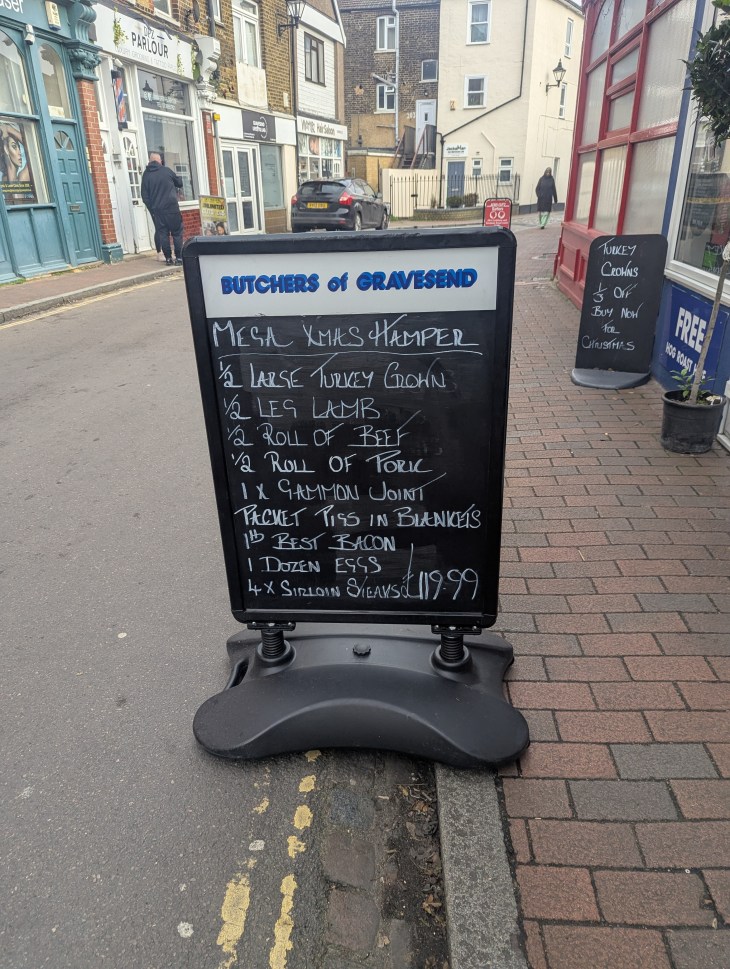 PARLOUR
BUTCHERS of GRAVESEND
MEGA XMAS HAMPER
½ LARGE TURKEY CROWN
½ LEG LAMB
½ ROLL OF BEEF
½ ROLL OF PORK
1 X GAMMON JOINT
PACKET PIGS IN BLANKETS
1lb BEST BACON
1 DOZEN EGGS
4 X SIRLOIN STEAKS £119.99
TURKEY
CROWNS
⅓ OFF
BUY NOW
FOR
CHRISTMAS
FREE
HOG ROAST